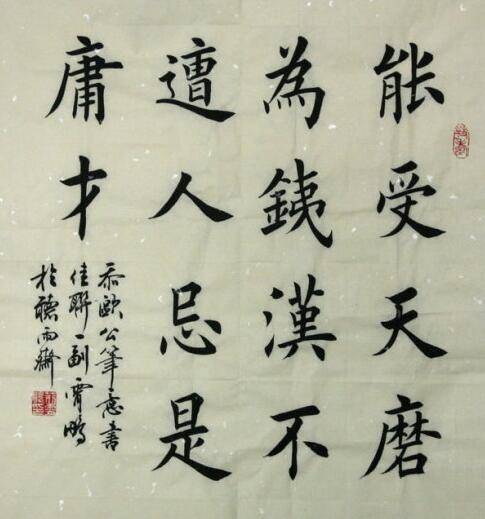 能受天磨
為銕漢不
遭人忌是
庸才
忝歐公筆意書
佳聯一副霄鵬
於聽雨齋